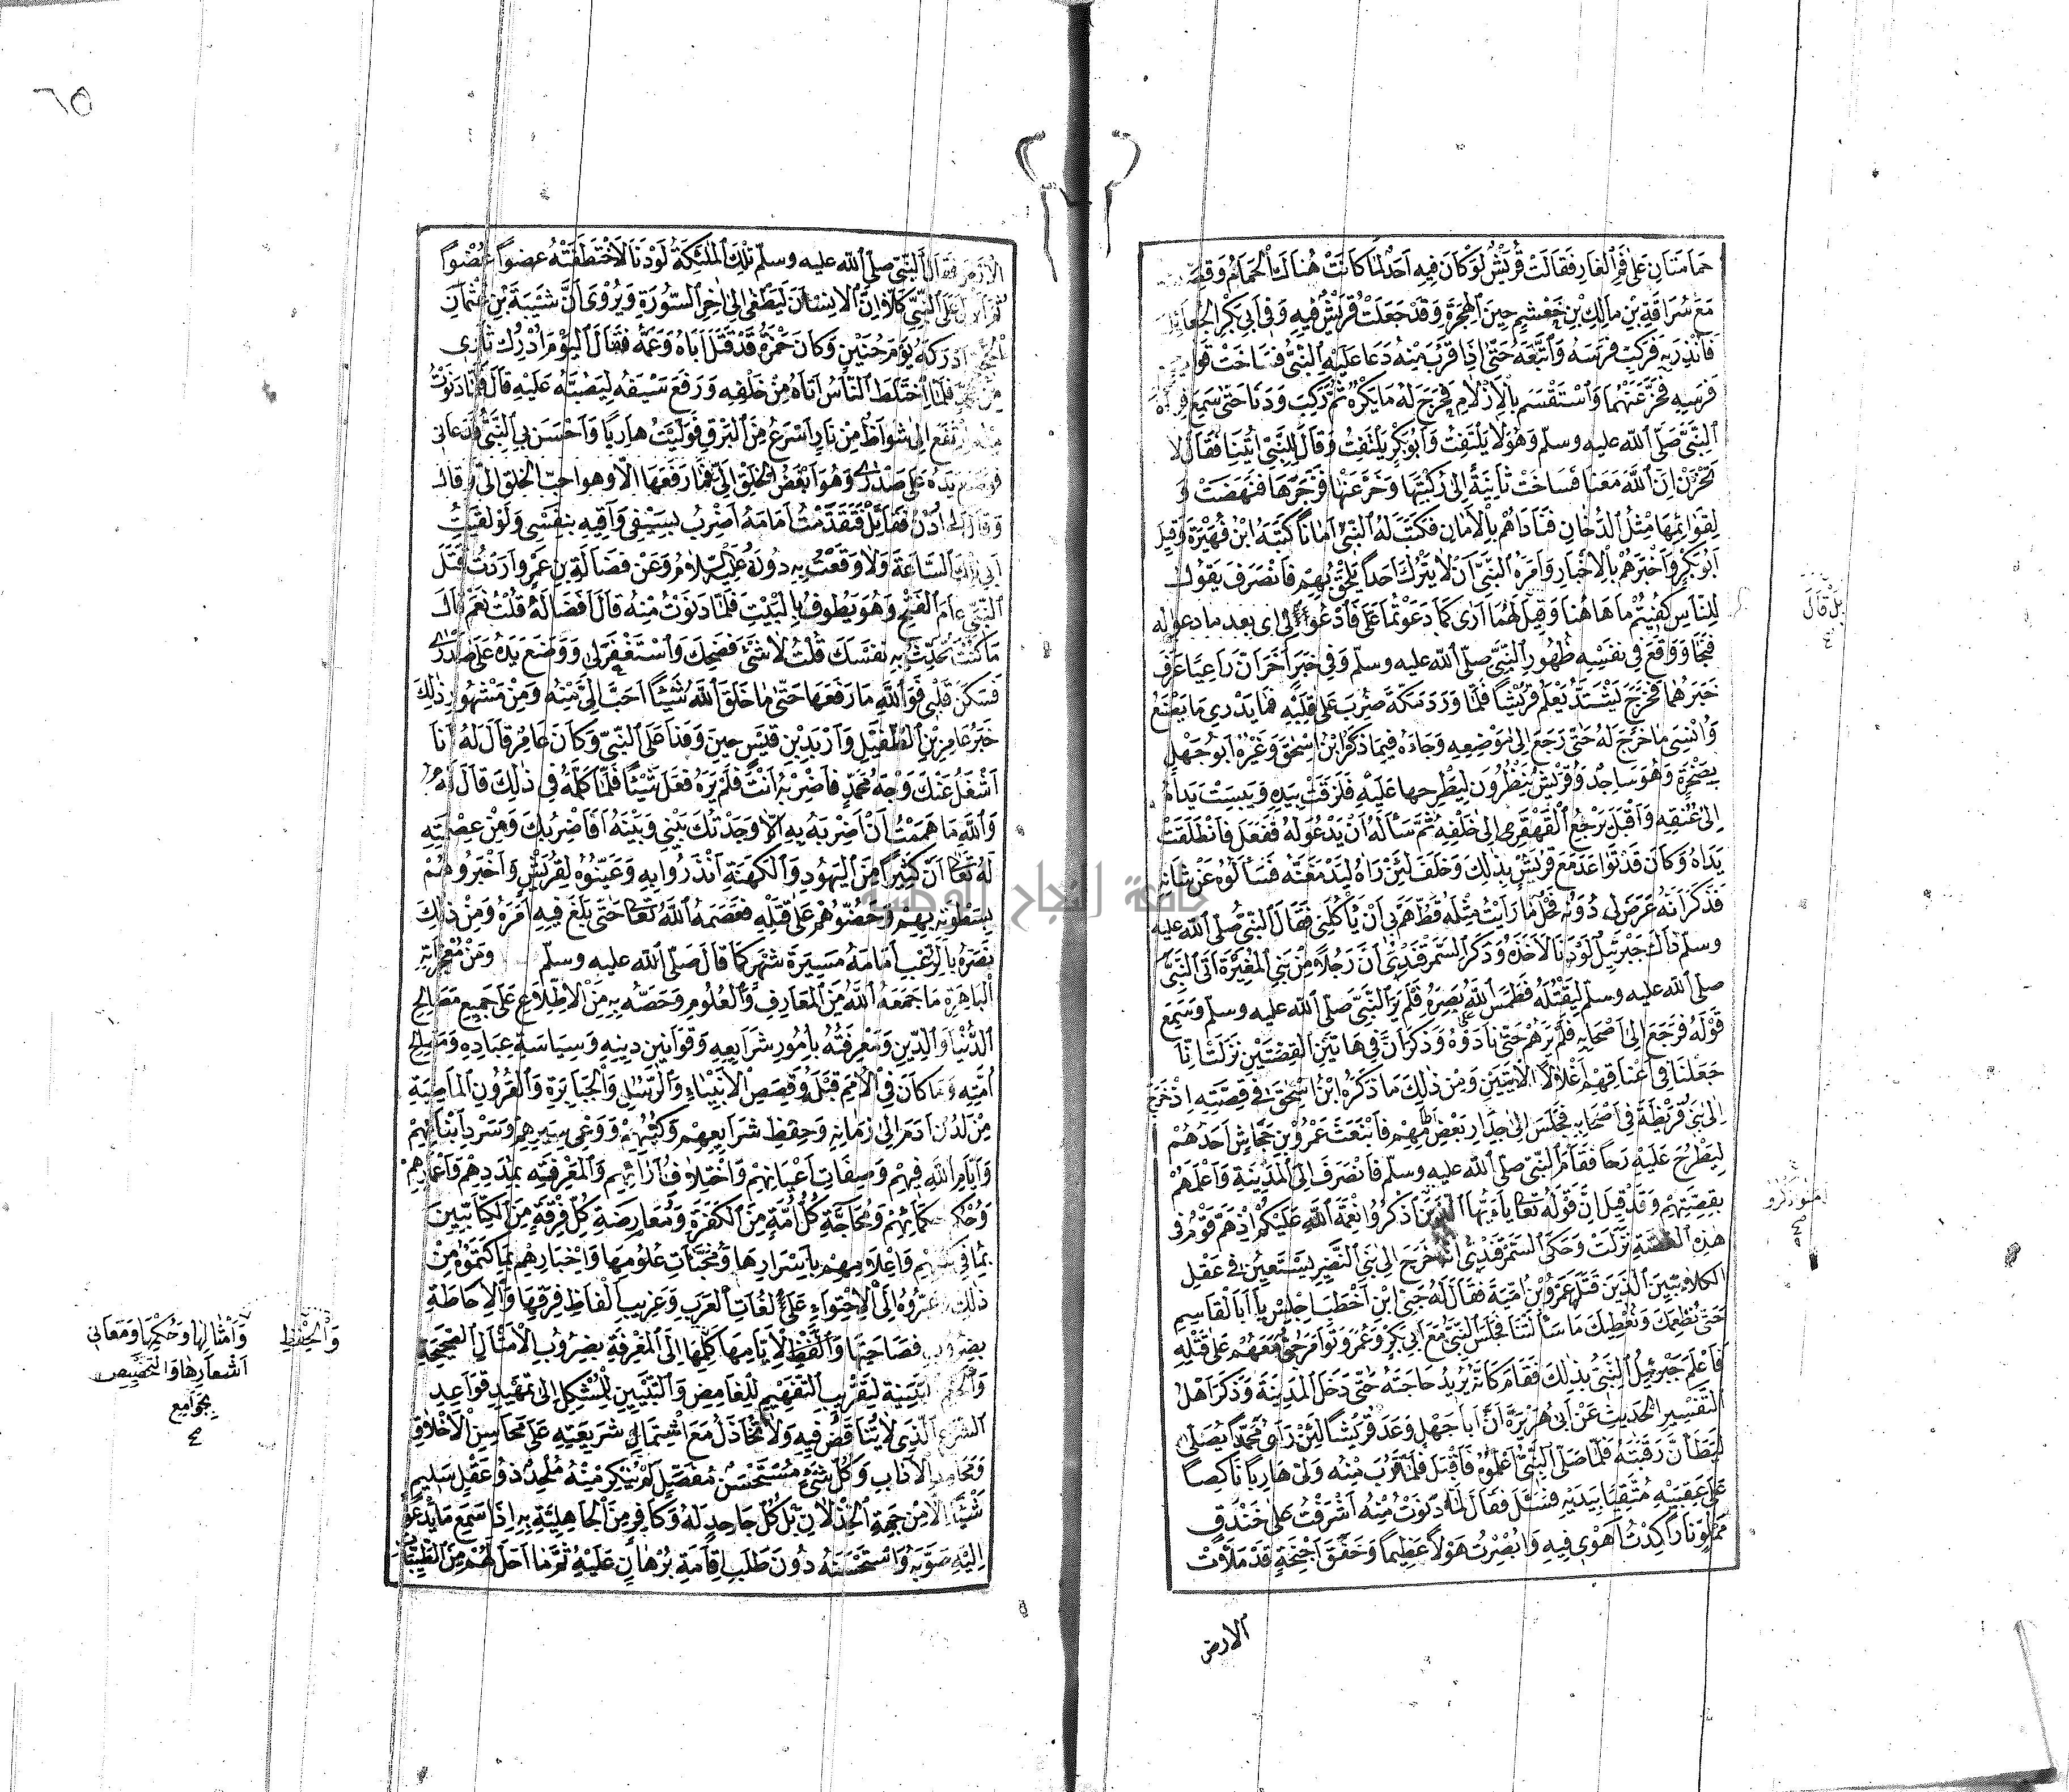 حمامتان على فم الغار فقالت قريش لو كان فيه احد لما كانت هناك الحمام وقصته
مع سراقة بن مالك بن جعشم حين الهجرة وقد جعلت قريش فيه وفي ابي بكر الجعائل
فانذر به فركب فرسه واتبعه حتى اذا قرب منه دعا عليه النبي فساخت قوائم
فرسه فخر عنها واستقسم بالازلام فخرج له ما يكره ثم ركب ودنا حتى سمع قراءة
النبي صلى الله عليه وسلم وهو لا يلتفت وابو بكر يلتفت وقال للنبي اتينا فقال لا
تحزن ان الله معنا فساخت ثانية الى ركبتها وخر عنها فزجرها فنهضت و
لقوائمها مثل الدخان فناداهم بالامان فكتب له النبي امانا كتبه ابن فهيرة وقيل
ابو بكر واخبرهم بالاخبار وامره النبي ان لا يترك احدا يلحق بهم فانصرف يقول
للناس كفيتم ما هاهنا وقيل لهما ارى كما دعوتما علي فادعوا لي اي بعد ما دعو له
فنجا ووقع في نفسه ظهور النبي صلى الله عليه وسلم وفي خبر اخر ان راعيا عرف
خبرهما فخرج يشتد يعلم قريشا فلما ورد مكة ضرب على قلبه فما يدري ما يصنع
وانسي ما خرج له حتى رجع الى موضعه وجاءه فيما ذكر ابن اسحق وغيره ابو جهل
بصخرة وهو ساجد وقريش ينظرون ليطرحها عليه فلزقت بيده ويبست يداه
الى عنقه واقبل يرجع القهقرى الى خلفه ثم سأله ان يدعو له ففعل فانطلقت
يداه وكان قد تواعد مع قريش بذلك وحلف لئن راه ليدمغنه فسألوه عن شانه
فذكر انه عرض لي دونه فحل ما رايت مثله قط هم بي ان ياكلني فقال النبي صلى الله عليه
وسلم ذاك جبرئيل لو دنا لاخذه وذكر السمرقندي ان رجلا من بني المغيرة اتى النبي
صلى الله عليه وسلم ليقتله فطمس الله بصره فلم ير النبي صلى الله عليه وسلم وسمع
قوله فرجع الى اصحابه فلم يرهم حتى نادوه وذكر ان في هاتين القصتين نزلت انا
جعلنا في اعناقهم اغلالا الايتين ومن ذلك ما ذكره ابن اسحق في قصته اذ خرج
الى بني قريظة في اصحابه فجلس الى جدار بعض اطامهم فانبعث عمرو بن جحاش احدهم
ليطرح عليه رحا فقام النبي صلى الله عليه وسلم فانصرف الى المدينة واعلمهم
بقصتهم وقد قيل ان قوله تعالى يا ايها الذين اذكروا نعمة الله عليكم اذ هم قوم في
هذه القصة نزلت وحكى السمرقندي انه خرج الى بني النضير يستعين في عقل
الكلابيين الذين قتل عمرو بن امية فقال له حيي ابن اخطب اجلس يا ابا القاسم
حتى نطعمك ونعطيك ما سألتنا فجلس النبي مع ابي بكر وعمر وتوامر حيي معهم على قتله
فاعلم جبرئيل النبي بذلك فقام كانه يريد حاجته حتى دخل المدينة وذكر اهل
التفسير الحديث عن ابي هريرة ان ابا جهل وعد قريشا لئن راى محمدا يصلي
ليطأن رقبته فلما صلى النبي اعلموه فاقبل فلما قرب منه ولى هاربا ناكصا
على عقبيه متقيا بيديه فسئل فقال لما دنوت منه اشرفت على خندق
مملو نارا كدت اهوي فيه وابصرت هولا عظيما وخفق اجنحة قد ملأت
الارض
بل قال
٦٥
الارض فقال النبي صلى الله عليه وسلم تلك الملئكة لو دنا لاختطفته عضوا عضوا
ثم انزل على النبي كلا ان الانسان ليطغى الى اخر السورة ويروى ان شيبة بن عثمان
الحجبي ادركه يوم حنين وكان حمزة قد قتل اباه وعمه فقال اليوم ادرك ثاري
من محمد فلما اختلط الناس اتاه من خلفه ورفع سيفه ليصبه عليه قال فلما دنوت
منه ارتفع الي شواظ من نار اسرع من البرق فوليت هاربا واحس بي النبي فدعاني
فوضع يده على صدري وهو ابغض الخلق الي فما رفعها الا وهو احب الخلق الي وقال
وقال لي ادن فقاتل فتقدمت امامه اضرب بسيفي واقيه بنفسي ولو لقيت
ابي تلك الساعة ولا وقعت به دونه عليه السلام وعن فضالة بن عمرو اردت قتل
النبي عام الفتح وهو يطوف بالبيت فلما دنوت منه قال افضالة قلت نعم قال
ما كنت تحدث به نفسك قلت لا شئ فضحك واستغفر لي ووضع يده على صدري
فسكن قلبي فوالله ما رفعها حتى ما خلق الله شيئا احب الي منه ومن مشهور ذلك
خبر عامر بن الطفيل واربد بن قيس حين وفدا على النبي وكان عامر قال له انا
اشغل عنك وجه محمد فاضربه انت فلم يره فعل شيئا فلما كلمه في ذلك قال له
والله ما هممت ان اضربه به الا وجدتك بيني وبينه افاضربك ومن عصمته
له تعالى ان كثيرا من اليهود والكهنة انذروا به وعينوه لقريش واخبروهم
بسطوته بهم وحضوهم على قتله فعصمه الله تعالى حتى بلغ فيه امره ومن ذلك
نصره بالرعب امامه مسيرة شهر كما قال صلى الله عليه وسلم ومن معجزاته
الباهرة ما جمعه الله من المعارف والعلوم وخصه به من الاطلاع على جميع مصالح
الدنيا والدين ومعرفته بامور شرايعه وقوانين دينه وسياسة عباده ومصالح
امته وما كان في الامم قبله وقصص الانبياء والرسل والجبابرة والقرون الماضية
من لدن ادم الى زمانه وحفظ شرايعهم وكتبهم ووعي سيرهم وسرد ابنائهم
وايام الله فيهم وصفات اعيانهم واختلاف ارائهم والمعرفة بمددهم واعمارهم
وحكم حكمائهم ومحاجة كل امة من الكفرة ومعارضة كل فرقة من الكتابيين
بما في كتبهم واعلامهم باسرارها ومخبات علومها واخبارهم بما كتموه من
ذلك وغيروه الى الاحتواء على لغات العرب وغريب الفاظ فرقها والاحاطة
بضروب فصاحتها والحفظ لايامها كلمها الى المعرفة بضروب الامثال الصحيحة
والحكم البينة لتقريب التفهيم للغامض والتبيين للمشكل الى تمهيد قواعد
الشرع الذي لا تناقض فيه ولا تخاذل مع اشتمال شريعته على محاسن الاخلاق
ومحامد الاداب وكل شئ مستحسن مفصل لم ينكر منه ملحد ذو عقل سليم
شيئا الا من جهة الخذلان بل كل جاحد له وكافر من الجاهلية به اذا سمع ما يدعو
اليه صوبه واستحسنه دون طلب اقامة برهان عليه ثم ما احل لهم من الطيبات
والحفظ
وامثالها وحكمها ومعاني
اشعارها والتخصيص
بجوامع